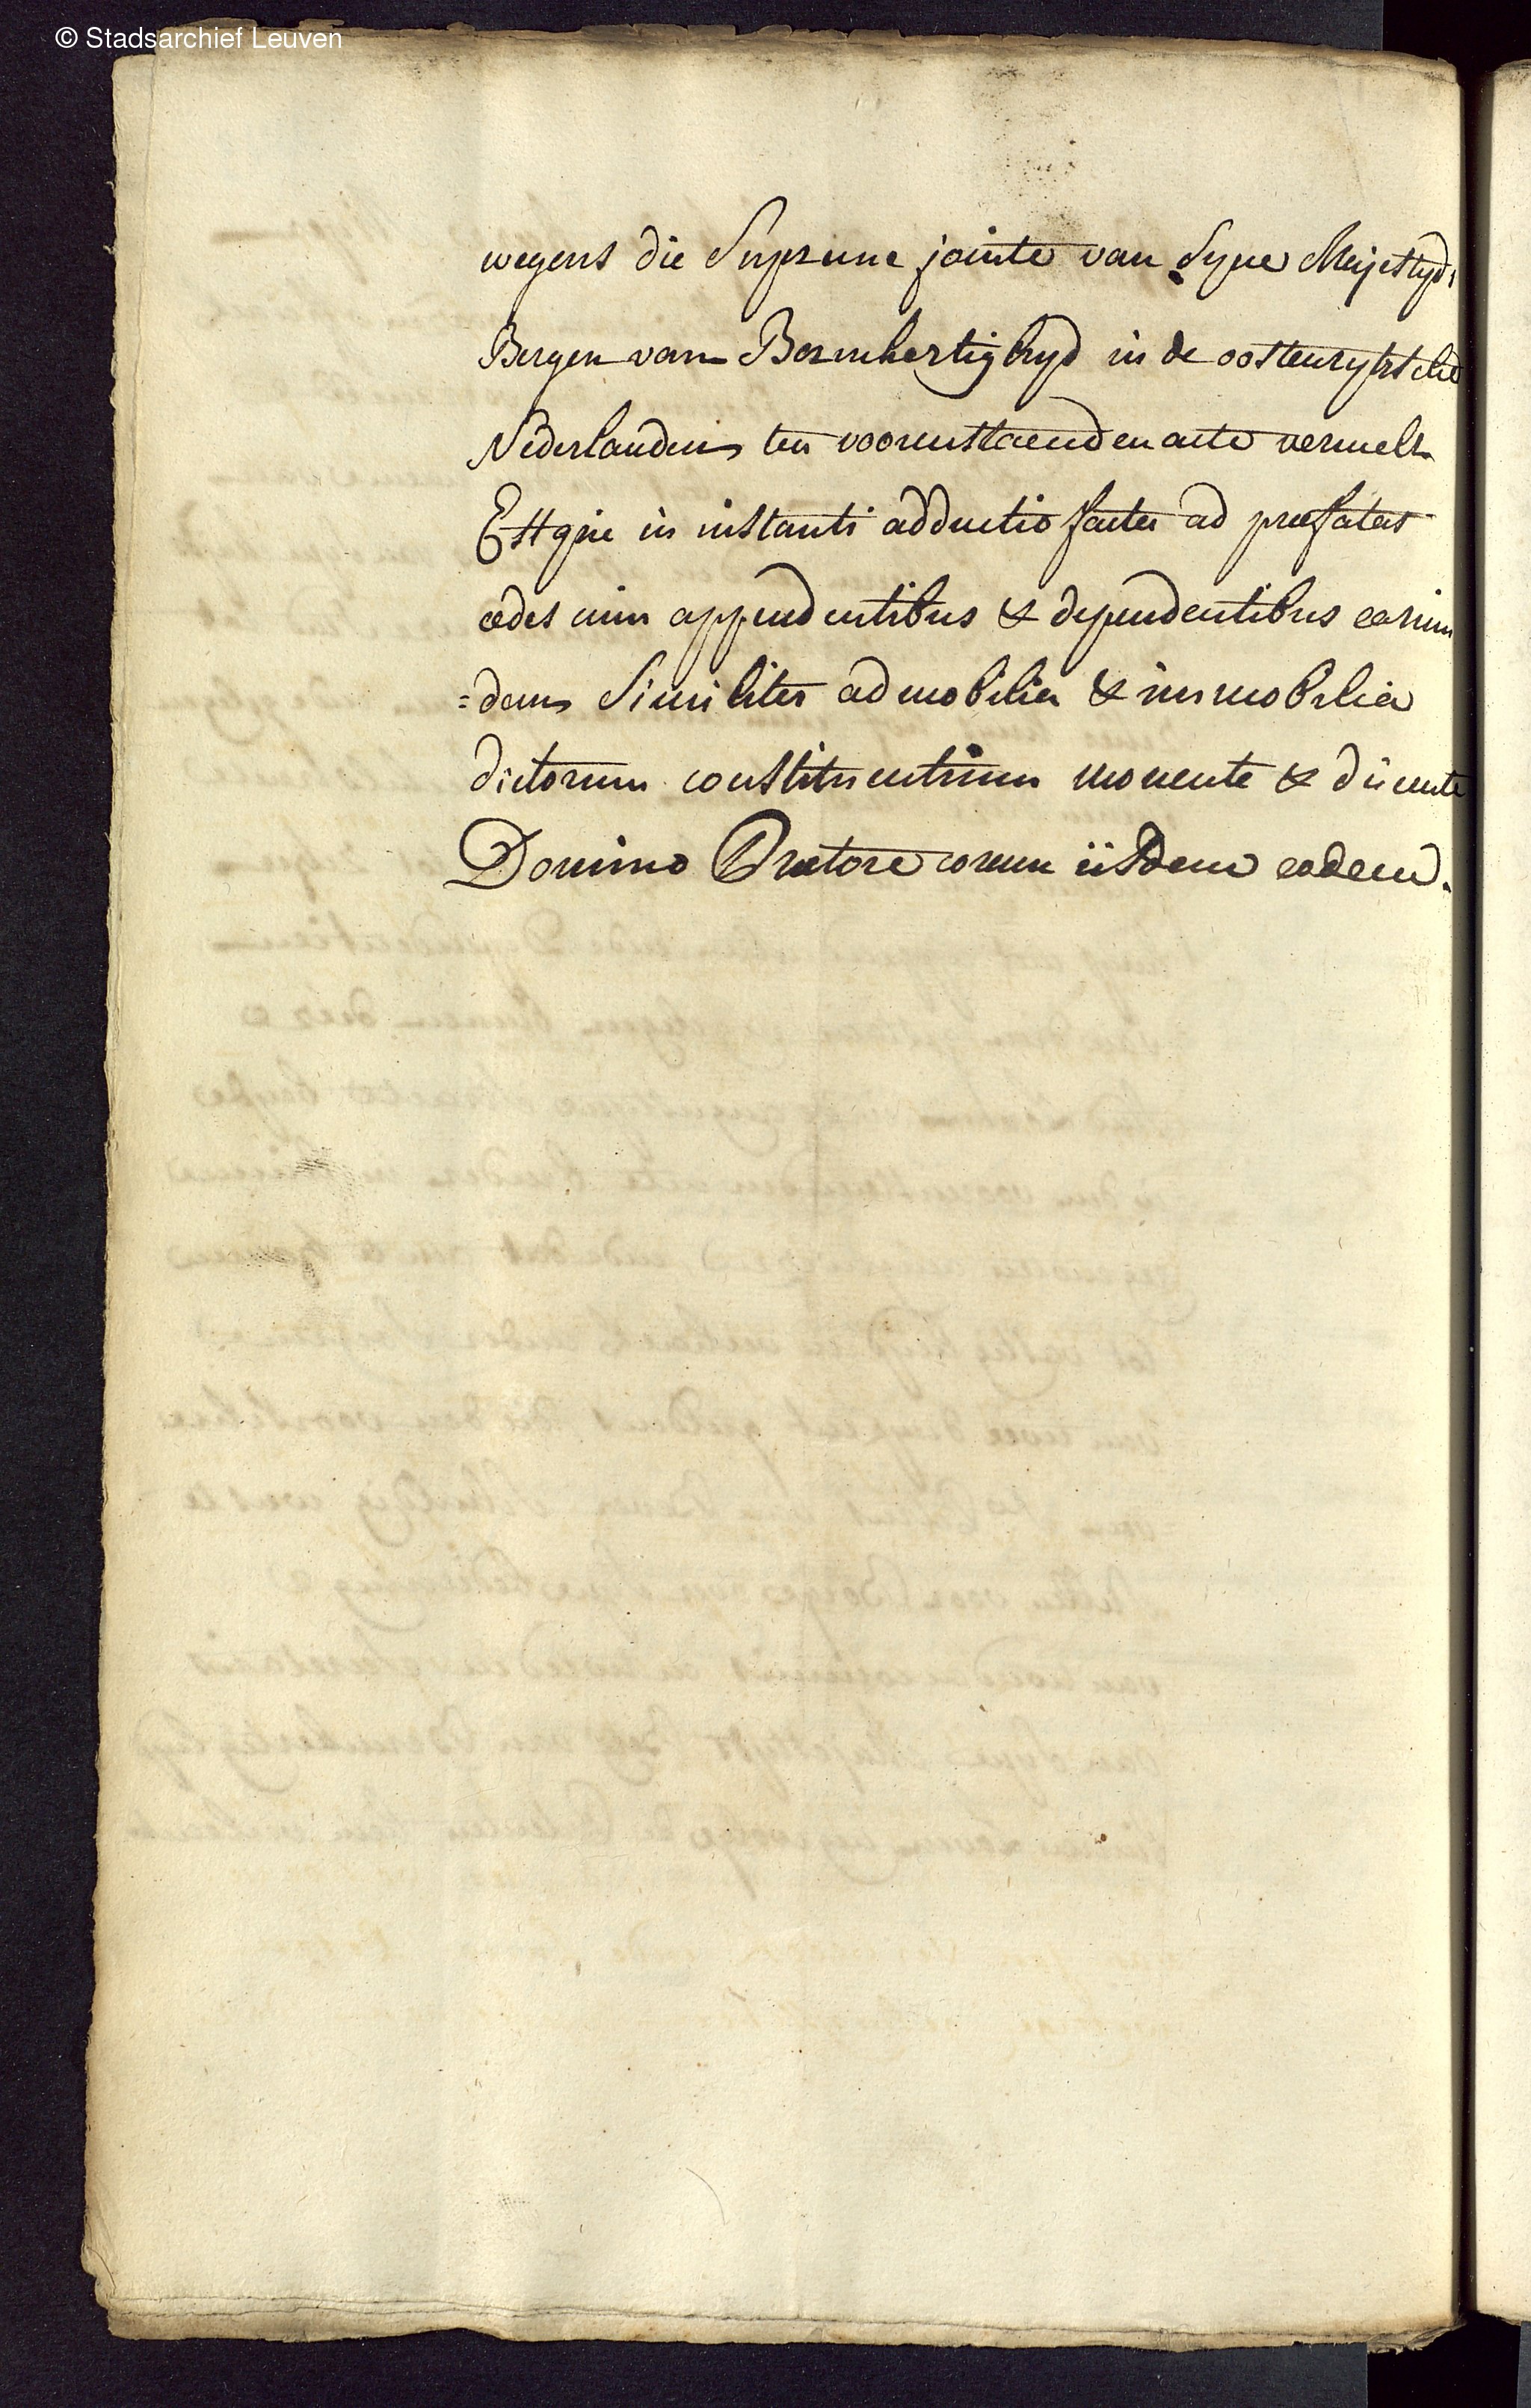 © Stadsarchief Leuven
wegens die Supreme jointe van Syne Majestyds
Bergen van Bermhertigheyd in de oostenrykssche
Nederlanden ten voorenstaenden acte vermelt
Estque in instanti adductio facta ad praefatas
ædes cum appendentibus & dependentibus earum
=dem Similiter ad mobilia & immobilia
dictorum constituentium monente & ducente
Domino Praetore coram iisdem eadem.